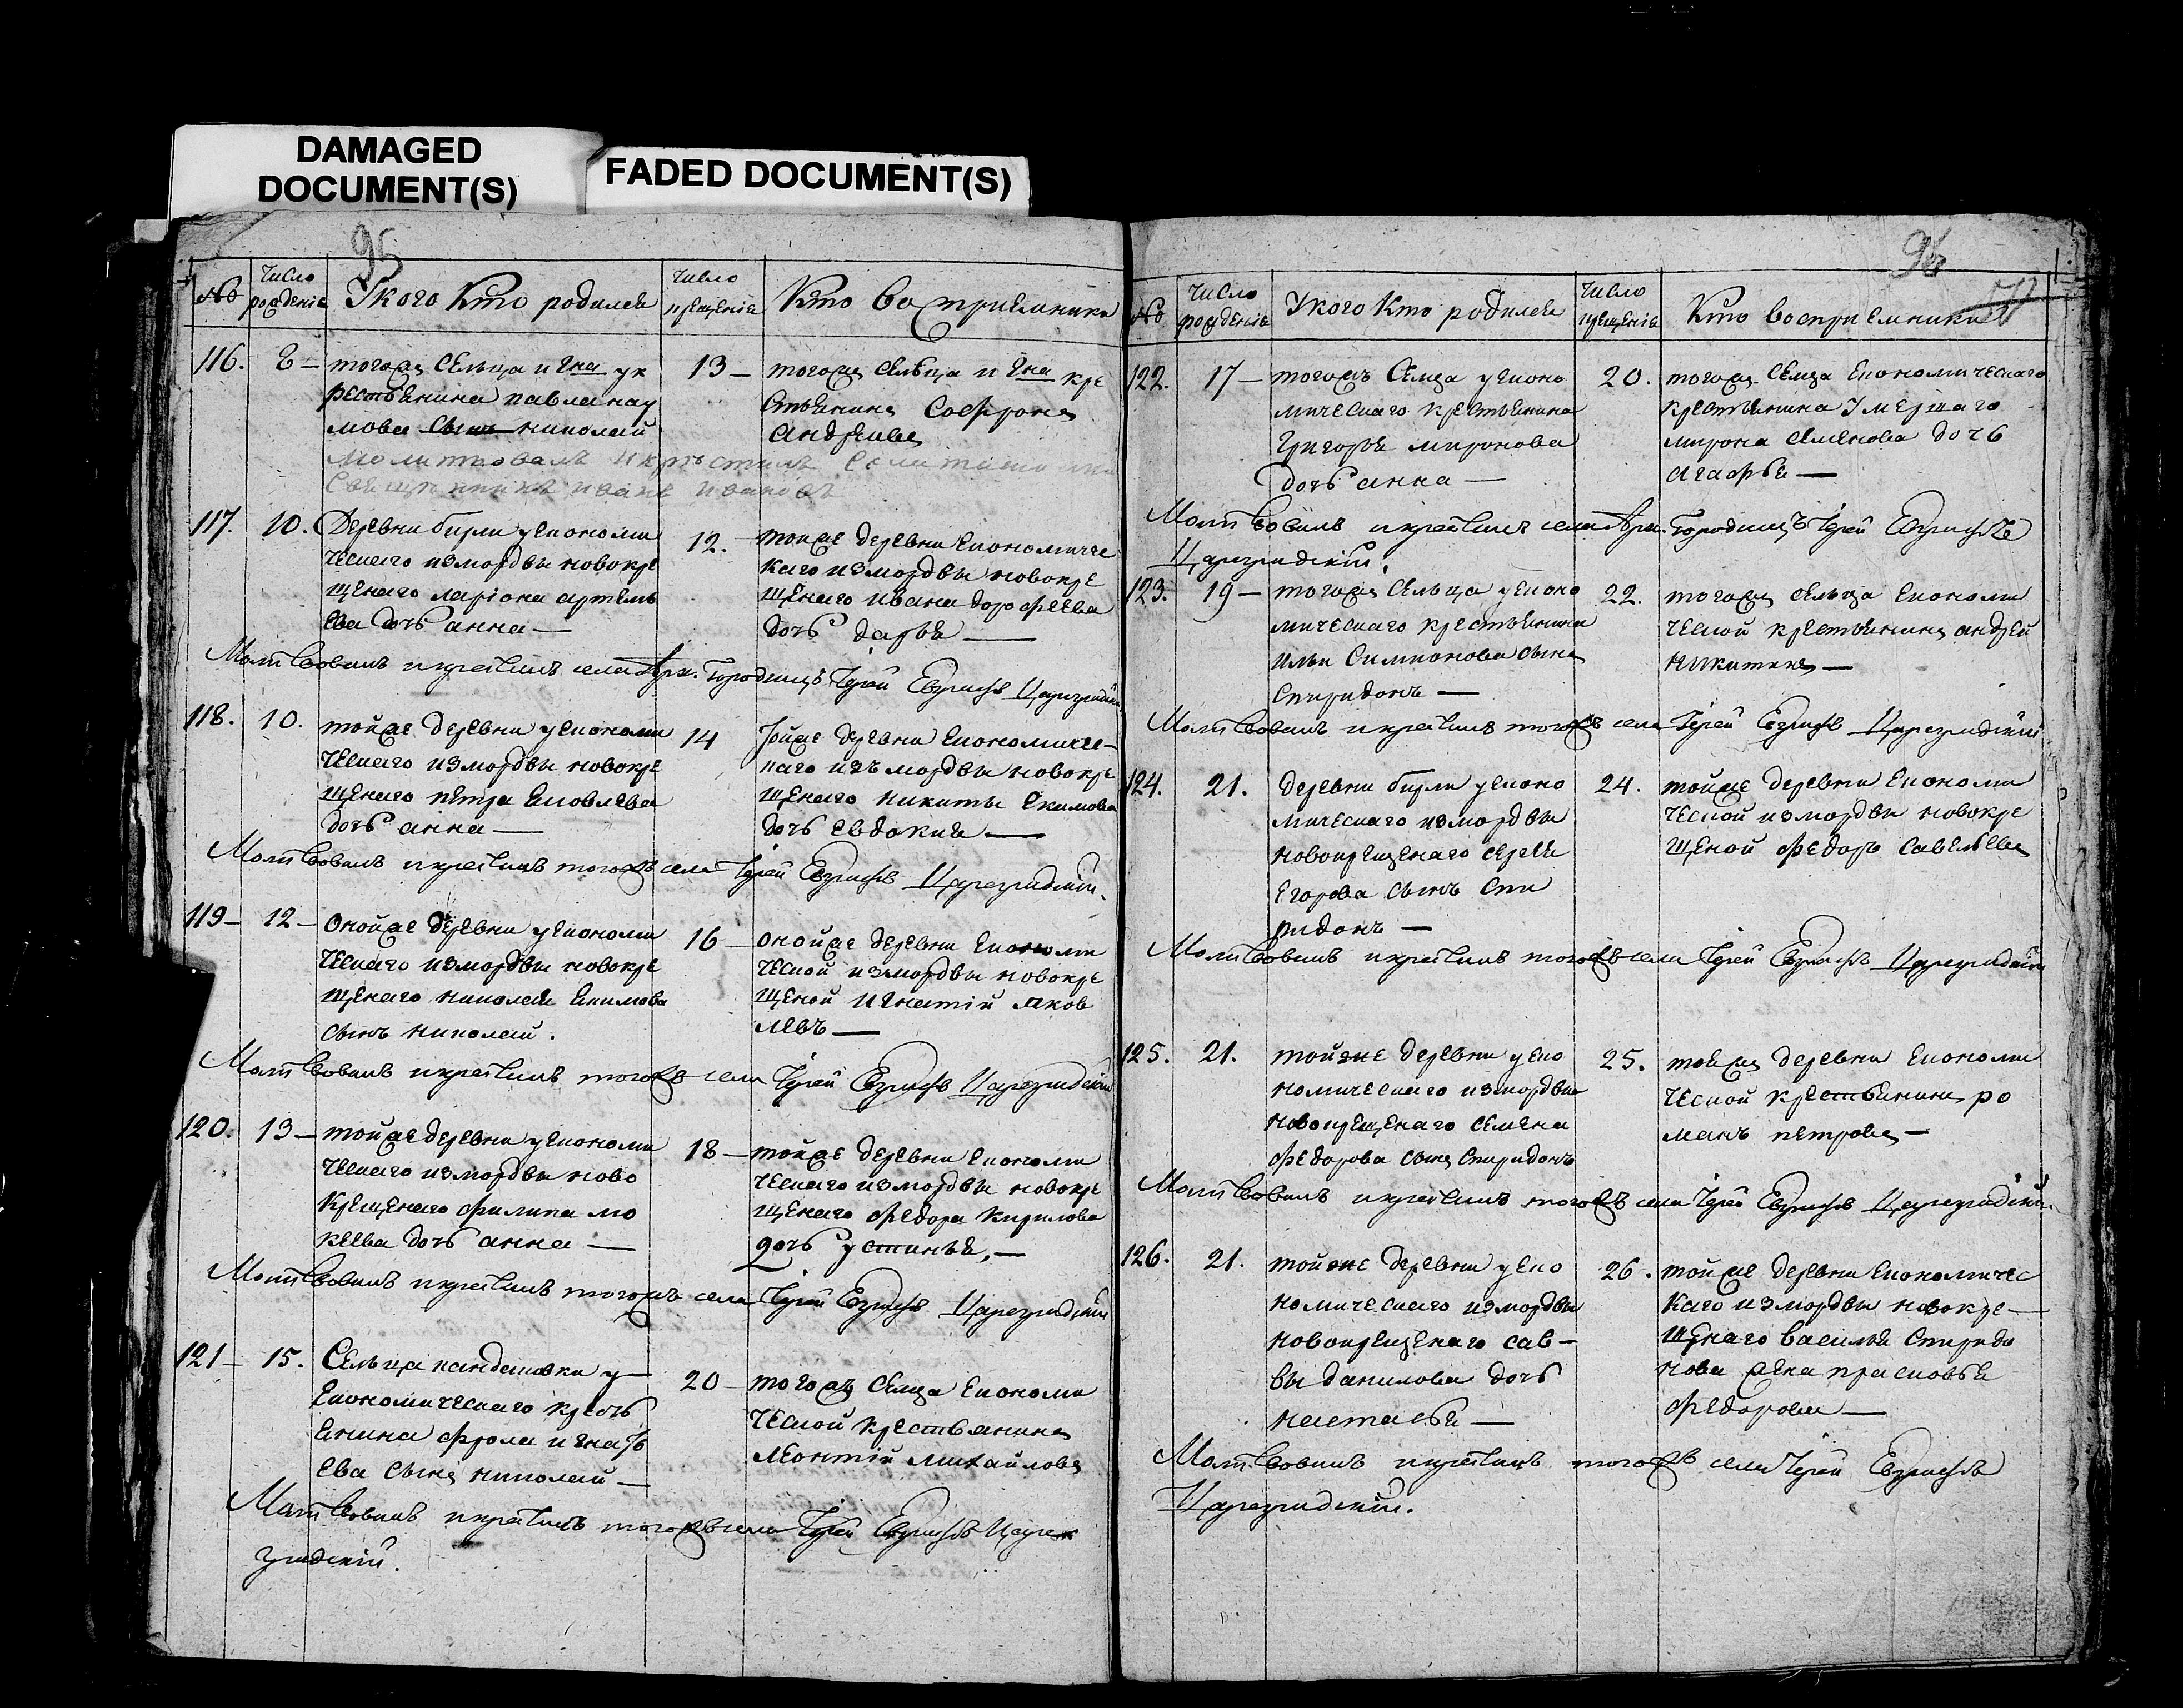 DAMAGED
DOCUMENT(S)
FADED DOCUMENT(S)
95
№ Число рожденiя У кого Кто родился Число крещенiя Кто воспрiемники
116. 8 — тогожъ сельца
рестьянина павла нау
мова сынъ николай
13 — тогожъ сельца кре
стьянинъ Софронъ
андреевъ
Молитвовалъ и крестилъ
Священникъ иванъ ивановъ
117. 10. Деревни бирли у економи
ческаго измордвы новокре
щенаго ларiона артемь
ева дочь анна —
12. тойже деревни економиче
каго измордвы новокре
щенаго ивана дорофеева
дочь дарья —
Молитвовалъ и крестилъ села Арх. Городищъ Iерей Евграфъ Цареградскiй
118. 10. тойже деревни у економи
ческаго измордвы новокре
щенаго петра Яковлева
дочь анна —
14 Тойже деревни економиче-
каго изъ мордвы новокре
щенаго никиты екимова
дочь евдокия —
Молитвовалъ и крестилъ тогожъ села Iерей Евграфъ Цареградскiй.
119 — 12 — Онойже деревни у економи
ческаго измордвы новокре
щенаго николая екимова
сынъ николай.
16 — онойже деревни економи
ческой измордвы новокре
щеной Игнатiй яков
левъ —
Молитвовалъ и крестилъ тогожъ села Iерей Евграфъ Цареградскiй
120. 13 — тойже деревни у економи
ческаго измордвы ново
крещенаго филипа мо
кеева дочь анна —
18 — тойже деревни економи
ческаго измордвы новокре
щенаго федора кирилова
дочь устинья, —
Молитвовалъ и крестилъ тогожъ села Iерей Евграфъ Цареградскiй
121 — 15. Сельца кандешовки у
економическаго кресть
янина фрола игнать
ева сынъ николай —
20 — тогожъ селца економи
ческой крестьянинъ
леонтiй михайловъ
Молитвовалъ и крестилъ тогожъ села Iерей Евграфъ Царе
градскiй.
96
№ Число рожденiя У кого Кто родился Число крещенiя Кто воспрiемники
122. 17 — тогожъ Селца у еконо
мическаго крестьянина
Григорья миронова
дочь анна —
20. тогожъ Селца економическаго
крестьянина умершаго
мирона семенова дочь
агафья —
Молитвовалъ и крестилъ села Арх. Городищъ Iерей Евграфъ
Цареградскiй.
123. 19 — тогожъ сельца у еконо
мическаго крестьянина
ильи Симионова сынъ
Спиридонъ —
22. тогожъ сельца економи
ческой крестьянинъ андрей
никитинъ —
Молитвовалъ и крестилъ тогожъ села Iерей Евграфъ Цареградскiй
124. 21. деревни бирли у еконо
мическаго измордвы
новокрещенаго сергея
егорова сынъ спи
ридонъ —
24. тойже деревни економи
ческой измордвы новокре
щеной федоръ савельевъ
Молитвовалъ и крестилъ тогожъ села Iерей Евграфъ Цареградскiй
125. 21. тойже деревни у еко
номическаго измордвы
новокрещенаго семена
федорова сынъ спиридонъ
25. деревни економи
ческой крестьянинъ ро
манъ петровъ —
Молитвовалъ и крестилъ тогожъ села Iерей Евграфъ Цареградскiй.
126. 21. тойже деревни у еко
номическаго измордвы
новокрещенаго сав-
вы данилова дочь
настасья —
26. тойже деревни економичес
каго измордвы новокре-
щенаго василья спиридо
нова жена прасковья
федорова —
Молитвовалъ и крестилъ тогожъ села Iерей Евграфъ
Цареградскiй.